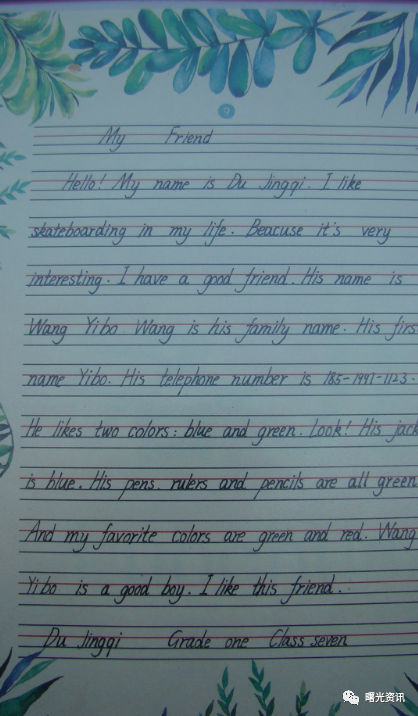 My Friend
Hello! My name is Du Jingqi. I like
skateboarding in my life. Beacuse it's very
interesting. I have a good friend. His name is
Wang Yibo Wang is his family name. His firs
name Yibo. His telephone number is 185-1997-1123.
He likes two colors: blue and green. Look! His jack
is blue. His pens. rulers and pencils are all green
And my favorite colors are green and red. Wang
Yibo is a good boy. I like this friend.
Du Jingqi Grade one Class seven
曙光资讯